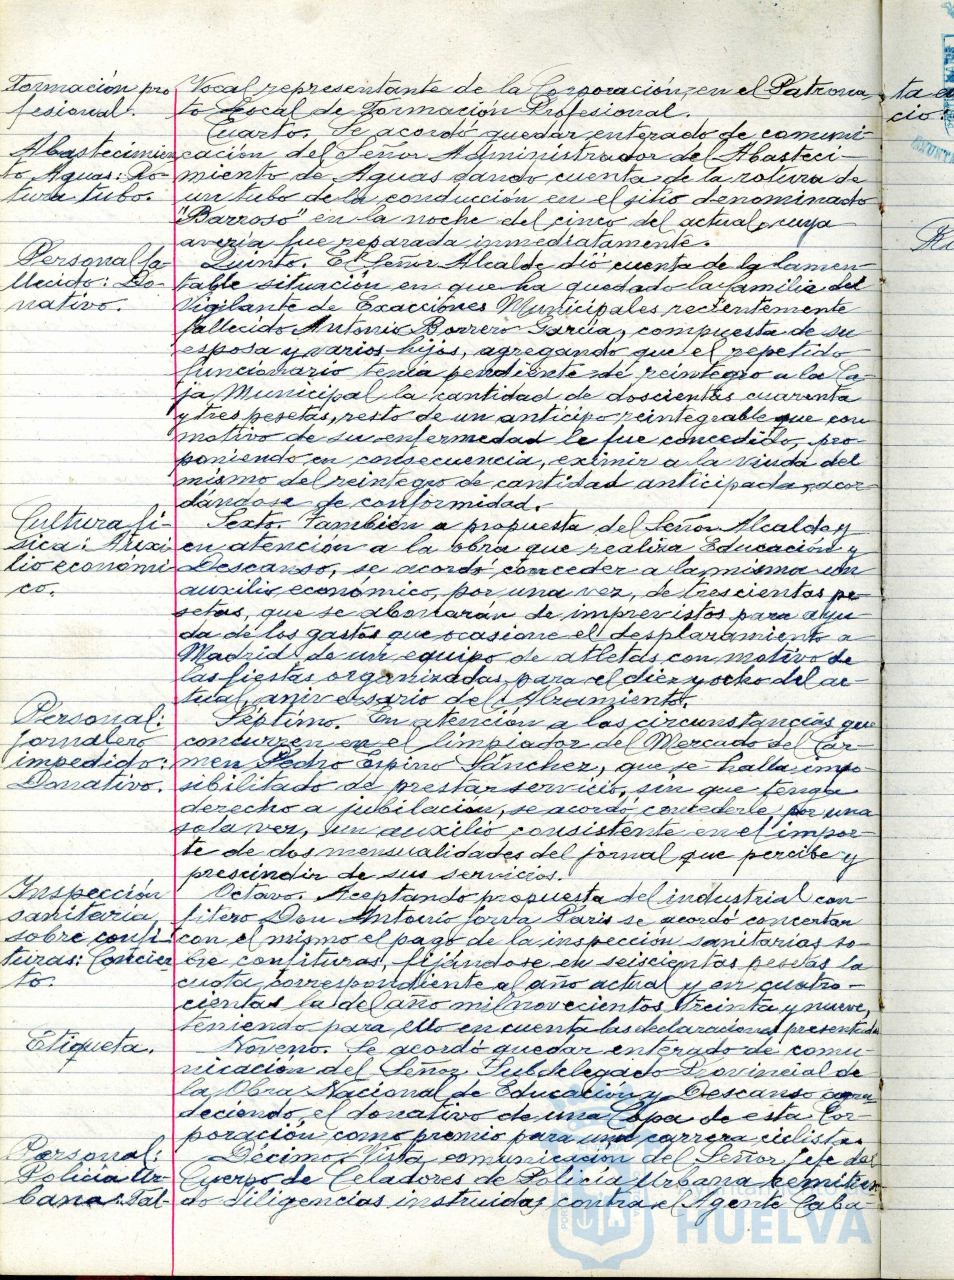 Formación pro
fesional.
Vocal representante de la Corporación, en el Patrona-
to Local de Formación Profesional.
Abastecimien
to Aguas: Ro-
tura tubo.
Cuarto. Se acordó quedar enterado de comuni-
cación del Señor Administrador del Abasteci-
miento de Aguas dando cuenta de la rotura de
un tubo de la conducción en el sitio denominado
"Barroso" en la noche del cinco del actual, cuya
avería fue reparada inmediatamente.
Personal fa-
llecido: Do-
nativo.
Quinto. El Señor Alcalde dió cuenta de la lamen-
table situación en que ha quedado la familia del
Vigilante de Exacciones Municipales recientemente
fallecido Antonio Borrero García, compuesta de su
esposa y varios hijos, agregando que el repetido
funcionario tenía pendiente de reintegro a la Ca-
ja Municipal la cantidad de doscientas cuarenta
y tres pesetas, resto de un anticipo reintegrable que con
motivo de su enfermedad le fue concedido, pro-
poniendo en consecuencia, eximir a la viuda del
mismo del reintegro de cantidad anticipada, acor-
dándose de conformidad.
Cultura fí-
sica: Auxi
lio económi
co.
Sexto. También a propuesta del Señor Alcalde y
en atención a la obra que realiza Educación y
Descanso, se acordó conceder a la misma un
auxilio económico, por una vez, de trescientas pe-
setas, que se abonarán de imprevistos para ayu-
da de los gastos que ocasione el desplazamiento a
Madrid de un equipo de atletas con motivo de
las fiestas organizadas para el diez y ocho del ac-
tual, aniversario del Alzamiento.
Personal:
jornalero
impedido:
Donativo.
Séptimo. En atención a las circunstancias que
concurren en el limpiador del Mercado del Car-
men Pedro Espino Sánchez, que se halla impo-
sibilitado de prestar servicio, sin que tenga
derecho a jubilación, se acordó concederle por una
sola vez, un auxilio consistente en el impor-
te de dos mensualidades del jornal que percibe y
prescindir de sus servicios.
Inspección
sanitaria
sobre confi-
turas: Concier
to.
Octavo. Aceptando propuesta del industrial con-
fitero Don Antonio Jorva Paris se acordó concertar
con el mismo el pago de la inspección sanitarias so-
bre confituras, fijándose en seiscientas pesetas la
cuota correspondiente al año actual y en cuatro-
cientas la del año mil novecientos treinta y nueve,
teniendo para ello en cuenta las declaraciones presentadas
Etiqueta.
Noveno. Se acordó quedar enterado de comu-
nicación del Señor Subdelegado Provincial de
la Obra Nacional de Educación y Descanso agra-
deciendo el donativo de una Copa de esta Cor-
poración como premio para una carrera ciclista.
Personal:
Policía Ur-
bana: Fal-
Décimo. Vista comunicación del Señor Jefe del
Cuerpo de Celadores de Policía Urbana remitien-
do diligencias instruidas contra el Agente Caba
ta a
cio:
HUELVA